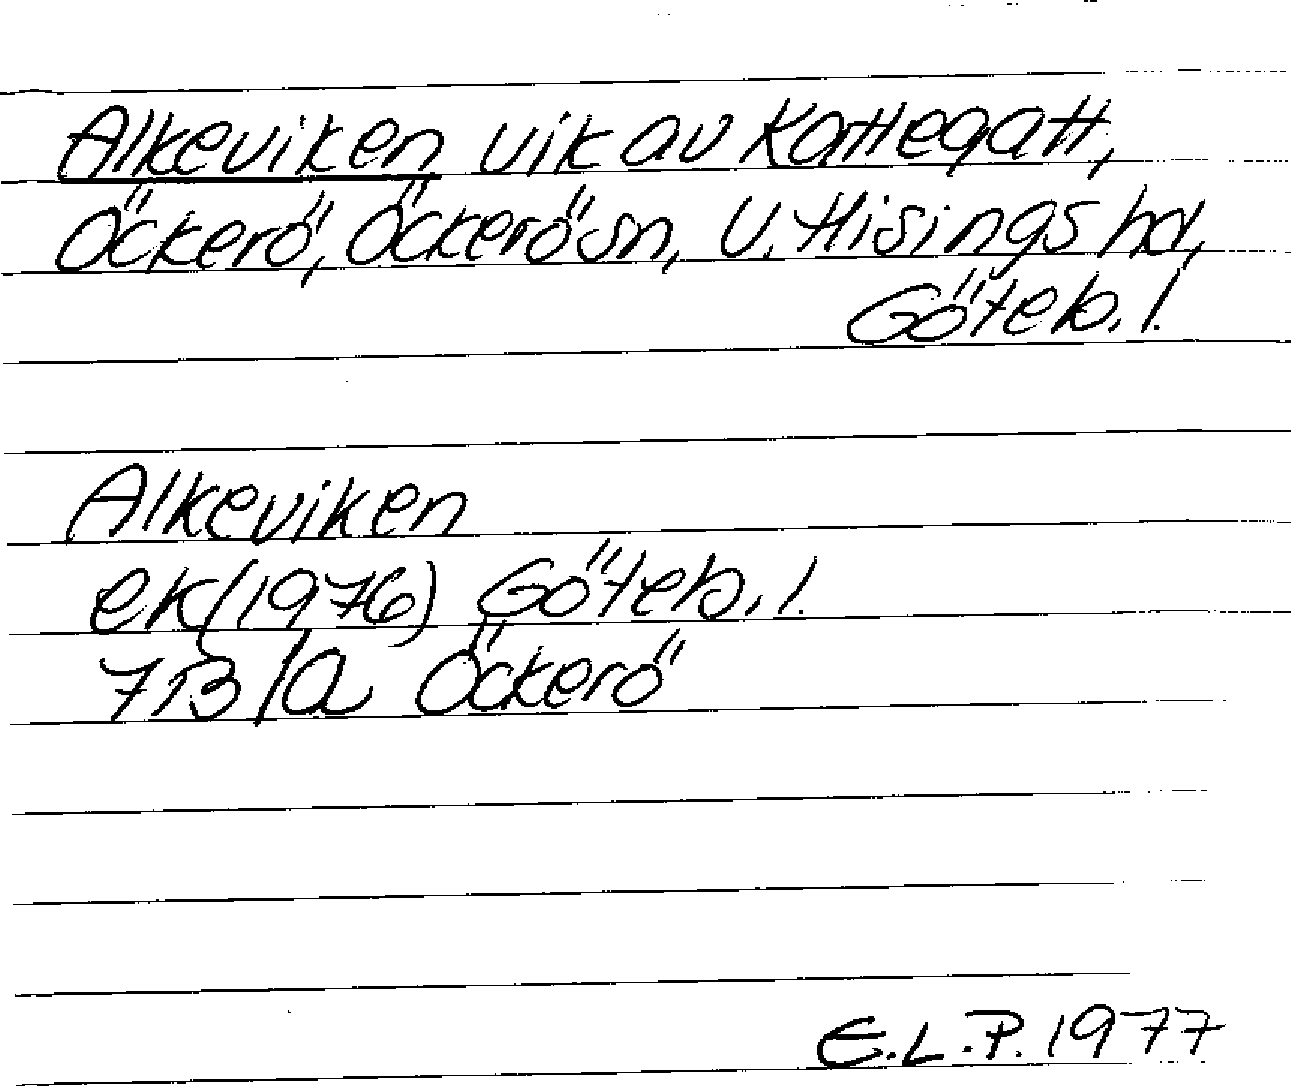 Alkeviken vik av Kattegatt,
Öckerö, Öckerö sn, V. Hisings hd,
Göteb. l.
Alkeviken
ek (1976) Göteb. l.
7B/a Öckerö
E.L.P. 1977